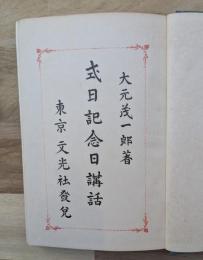 大元茂一郎著
式日記念日講話
東京 文光社發兌